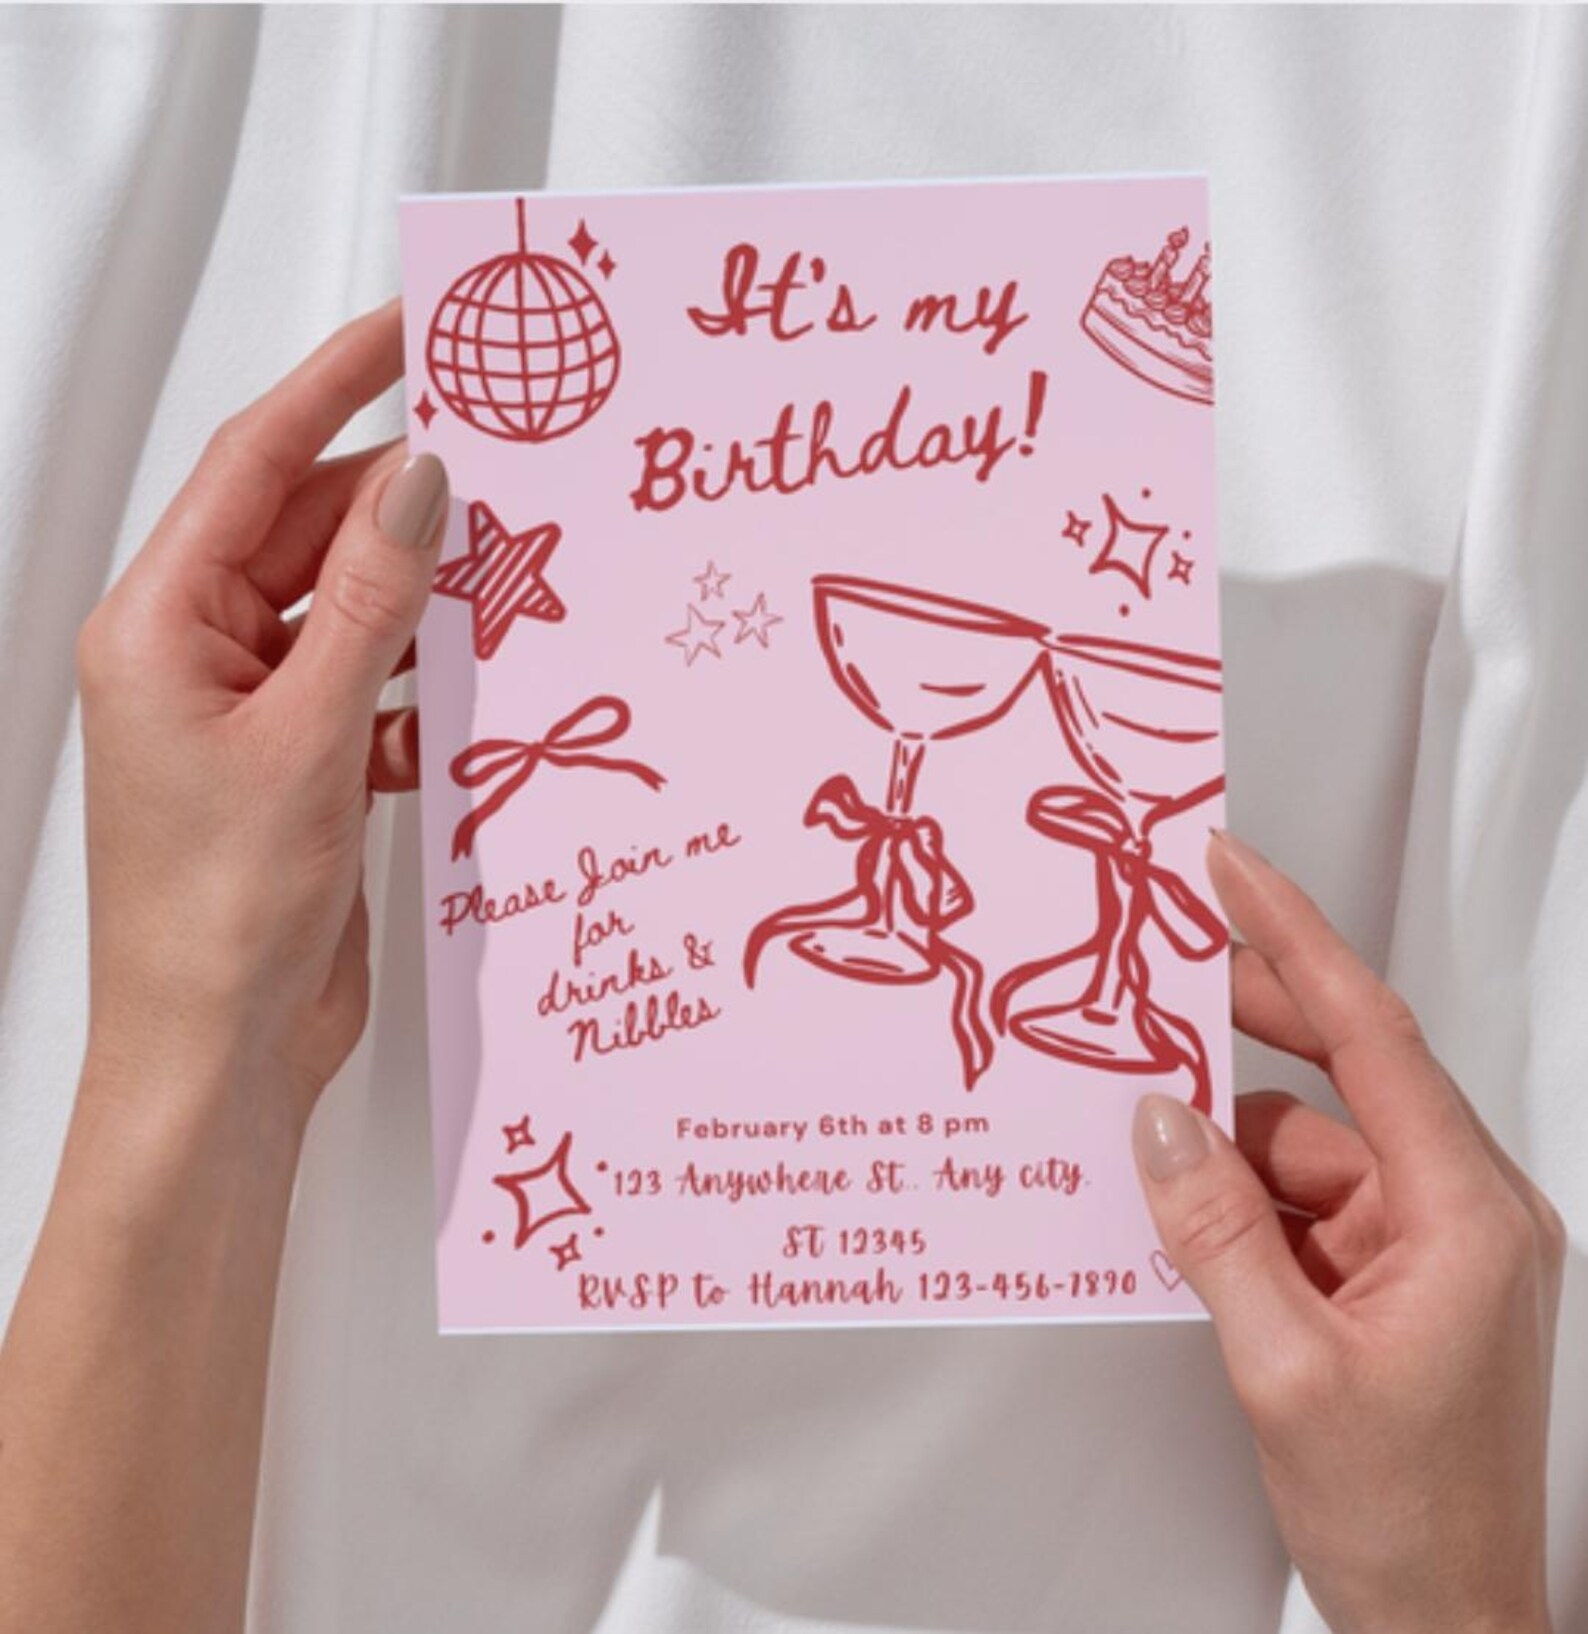 It's my
Birthday!
Please Join me
for
drinks &
Nibbles
February 6th at 8 pm
123 Anywhere St.. Any city.
ST 12345
RVSP to Hannah 123-456-7890